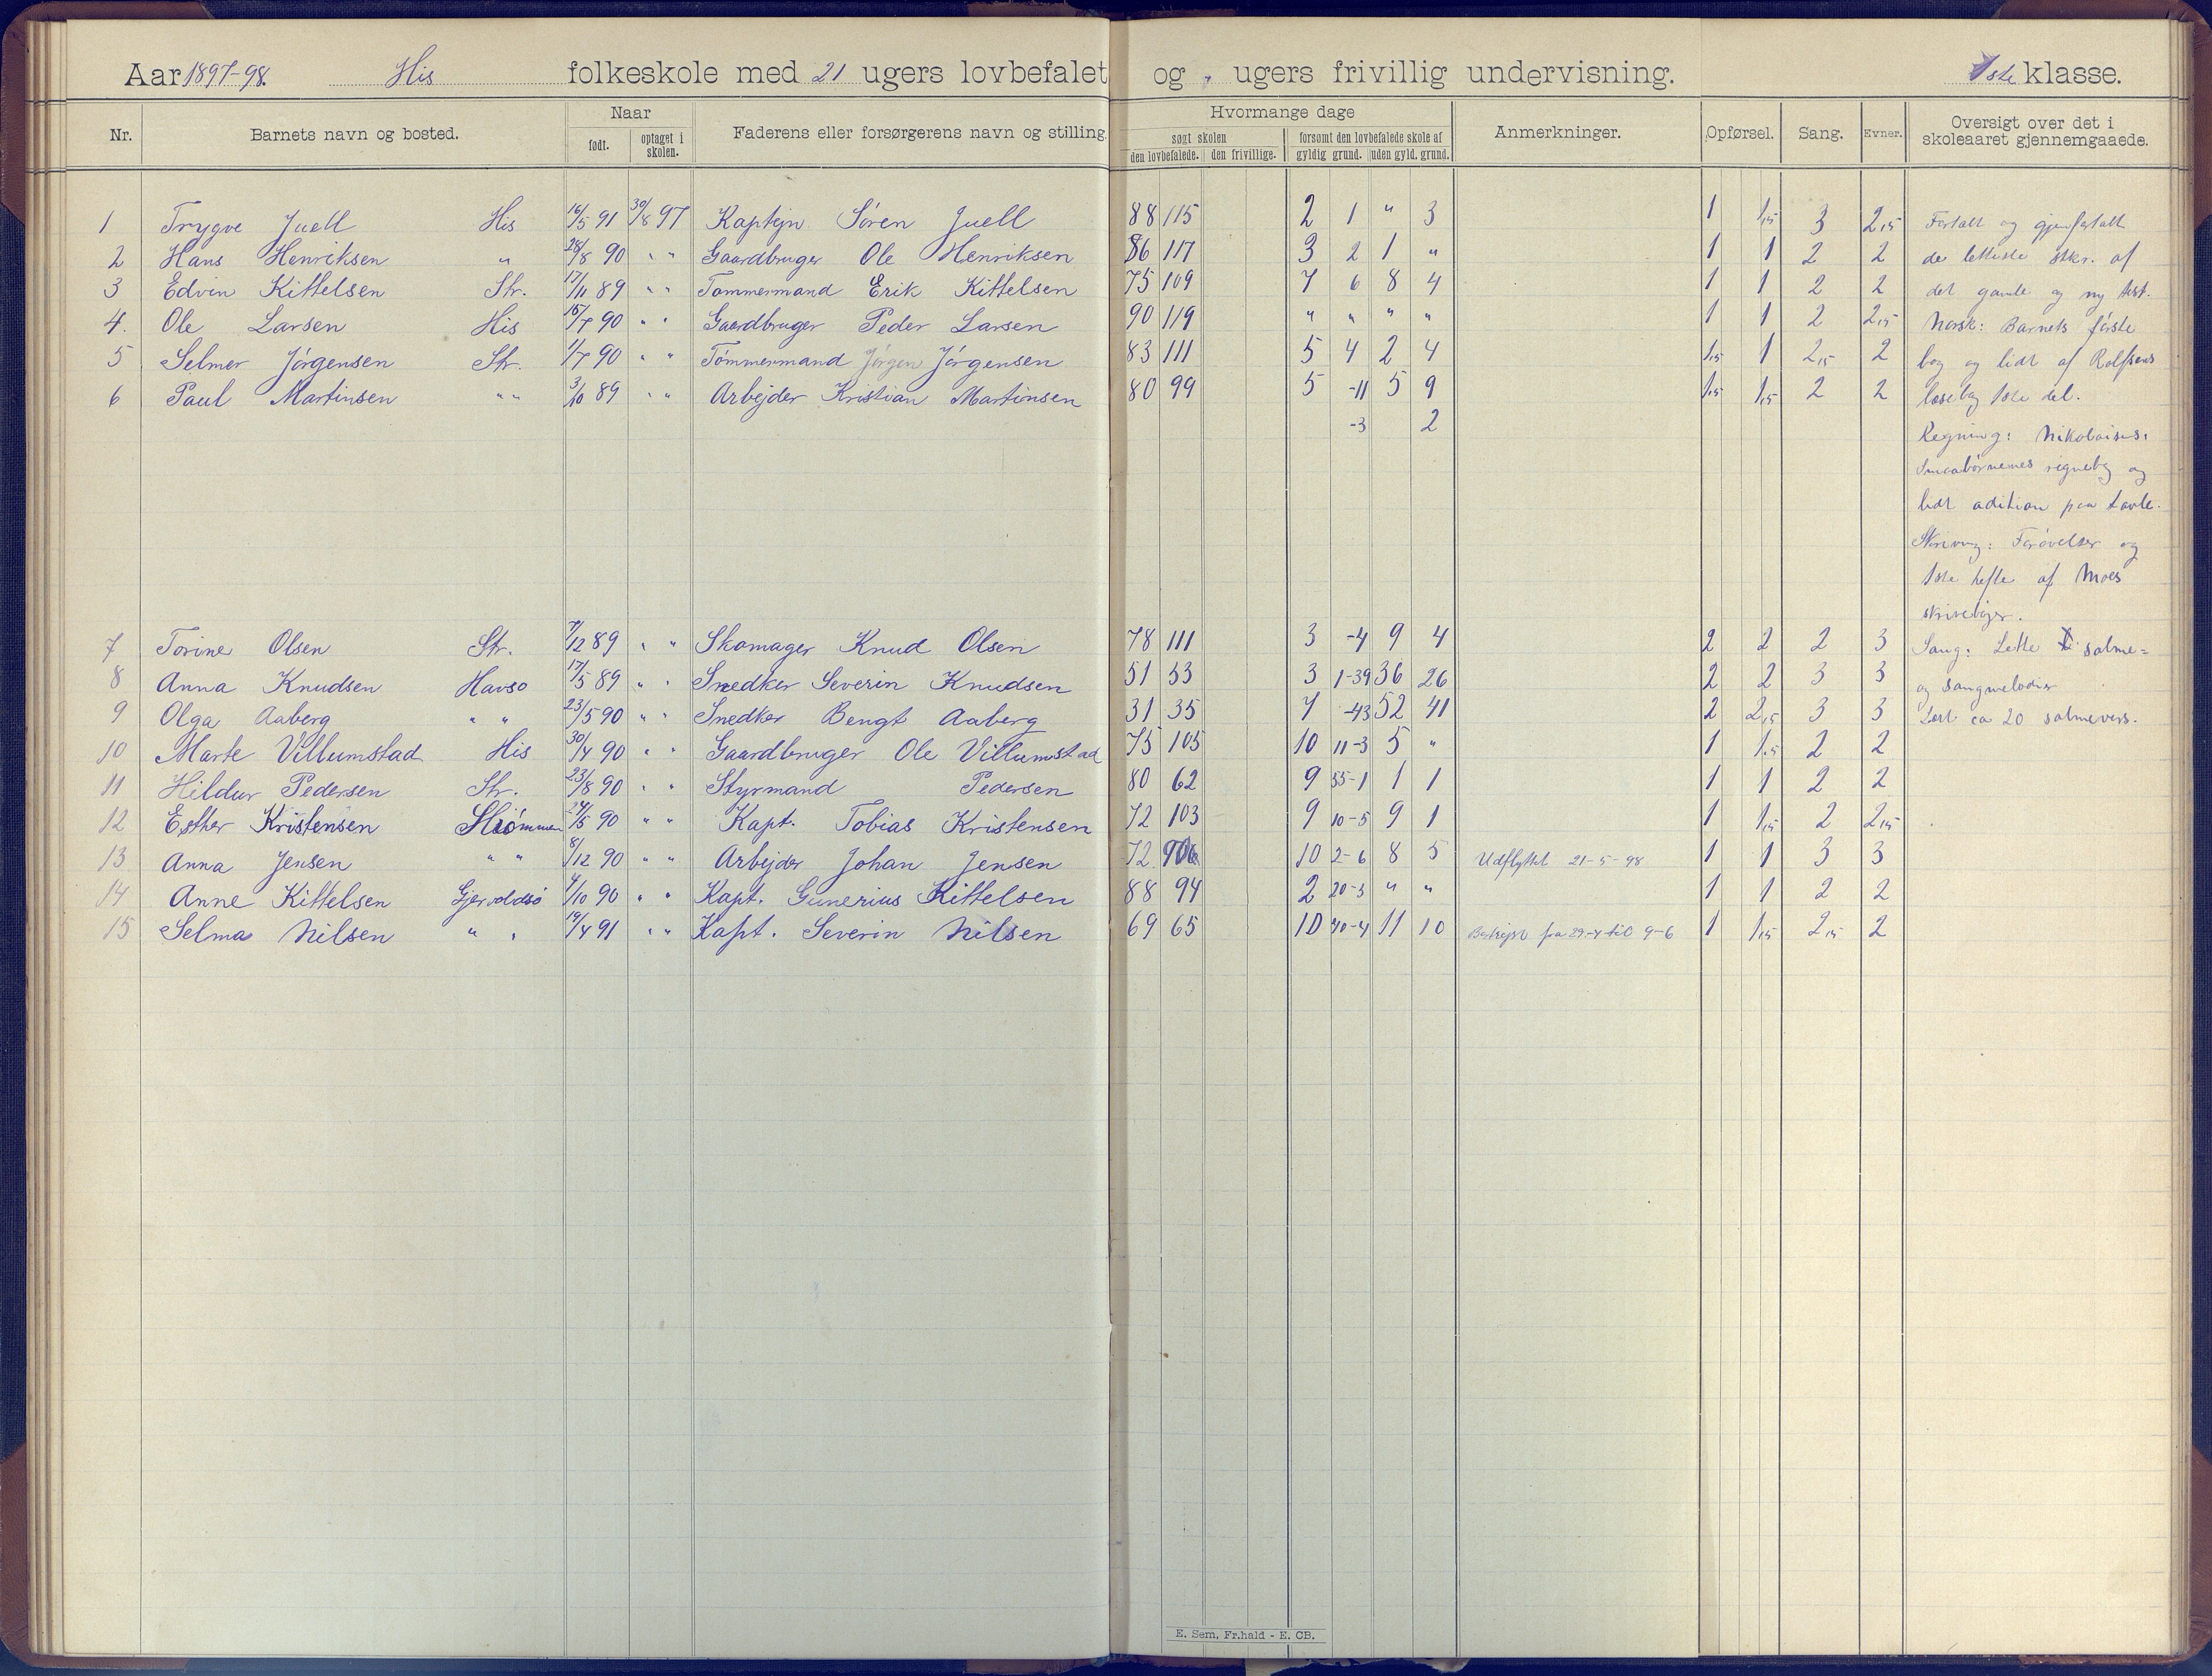 Aar 1897-98. His folkeskole med 21 ugers lovbefalet og " ugers frivillig undervisning. 1ste klasse.
Nr. Barnets navn og bosted. Naar født. optaget i skolen. Faderens eller forsørgerens navn og stilling. Hvormange dage søgt skolen den lovbefalede. den frivillige. forsømt den lovbefalede skole af gyldig grund. uden gyld. grund. Anmerkninger. Opførsel. Sang. Evner. Oversigt over det i skoleaaret gjennemgaaede.
1 Trygve Juell His 16/5 91 30/8 97 Kaptejn Søren Juell 88 115 2 1 " 3 1 1,5 3 2,5 Fortalt og gjenfortalt
2 Hans Henriksen " 28/8 90 " " Gaardbruger Ole Henriksen 86 117 3 2 1 " 1 1 2 2 de letteste stkr. af
3 Edvin Kittelsen Str. 17/11 89 " " Tømmermand Erik Kittelsen 75 109 7 6 8 4 1 1 2 2 det gamle og ny test.
4. Ole Larsen His 15/7 90 " " Gaardbruger Peder Larsen 90 119 " " " " 1 1 2 2,5 Norsk: Barnets første
5 Selmer Jørgensen Str. 1/7 90 " " Tømmermand Jørgen Jørgensen 83 111 5 4 2 4 1,5 1 2,5 2 bog og lidt af Rolfsens
6 Paul Martinsen " " 3/10 89 " " Arbejder Kristian Martinsen 80 99 5 -11 5 9 1,5 1,5 2 2 læsebog 1ste del.
-3 2
Regning: Nikolaisens
Smaabørnenes regnebog og
lidt adition paa tavle.
Skrivning: Forøvelser og
1ste hefte af Moes
skrivebøger.
7 Torine Olsen Str. 7/12 89 " " Skomager Knud Olsen 78 111 3 -4 9 4 2 2 2 3 Sang: Lette salme=
8 Anna Knudsen Havsø 17/5 89 " " Snedker Severin Knudsen 51 53 3 1-39 36 26 2 2 3 3 og sangmelodier
9 Olga Aaberg " " 23/5 90 " " Snedker Bengt Aaberg 31 35 7 -43 52 41 2 2,5 3 3 Lært ca 20 salmevers.
10 Marte Villumstad His 30/4 90 " " Gaardbruger Ole Villumstad 75 105 10 11-3 5 " 1 1,5 2 2
11 Hildur Pedersen Str. 23/8 90 " " Styrmand Pedersen 80 62 9 55-1 1 1 1 1 2 2
12 Esther Kristensen Strømmen 24/5 90 " " Kapt. Tobias Kristensen 72 103 9 10-5 9 1 1 1,5 2 2,5
13 Anna Jensen " " 8/12 90 " " Arbejder Johan Jensen 72 10 2-6 8 5 Udflyttet 21-5-98 1 1 3 3
14 Anne Kittelsen Gjervoldsø 4/10 90 " " Kapt. Gunerius Kittelsen 88 94 2 20-3 " " 1 1 2 2
15 Selma Nilsen " " 19/4 91 " " Kapt. Severin Nilsen 69 65 10 40-4 11 10 Bortrejst fra 29-4 til 9-6 1 1,5 2,5 2
E. Sem, Fr.hald - E. CB.